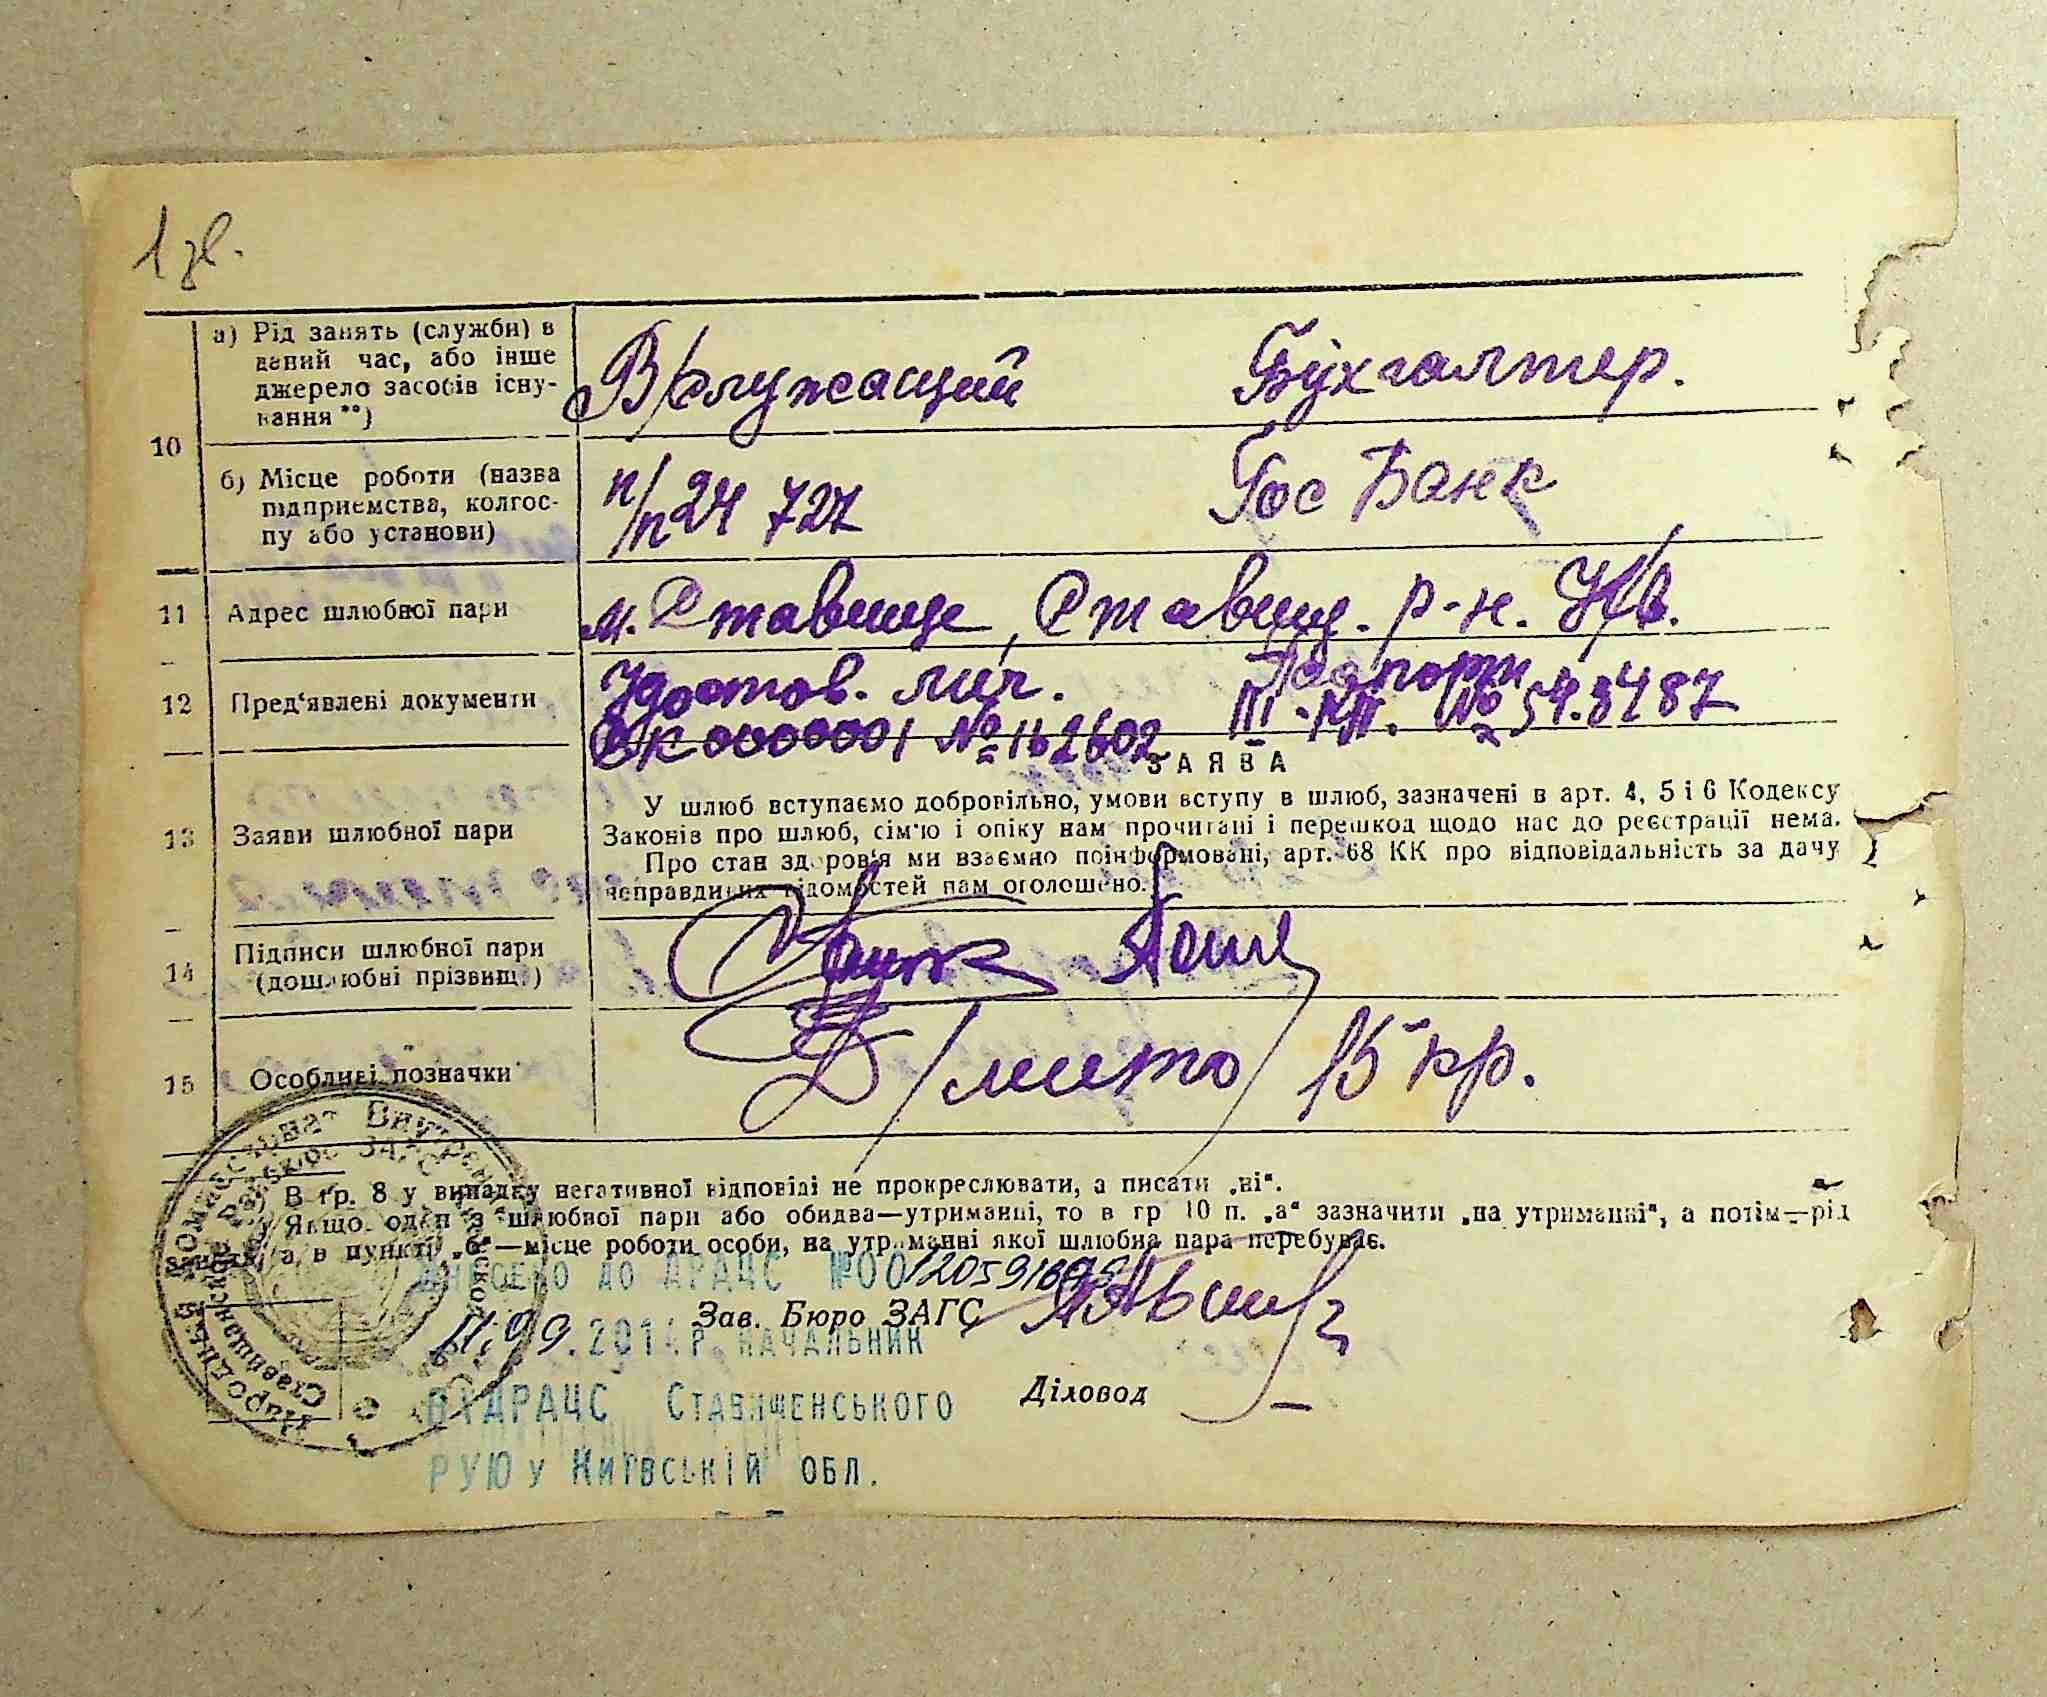 1 зв.
10
а) Рід занять (служби) в
даний час, або інше
джерело засобів існу-
вання **)
В/служащий
Бухгалтер.
б) Місце роботи (назва
підприємства, колгос-
пу або установи)
п/п 24 727
Гос Банк
11 Адрес шлюбної пари
м. Ставище, Ставищ. р-н. К/о.
12 Пред'явлені документи
Удостов. лич.
Паспорт
ОК 0000001 № 162602
III-КП. № 543487
13 Заяви шлюбної пари
ЗАЯВА
У шлюб вступаємо добровільно, умови вступу в шлюб, зазначені в арт. 4, 5 і 6 Кодексу
Законів про шлюб, сім'ю і опіку нам прочитані і перешкод щодо нас до реєстрації нема.
Про стан здоров'я ми взаємно поінформовані, арт. 68 КК про відповідальність за дачу
неправдивих відомостей нам оголошено.
14 Підписи шлюбної пари
(дошлюбні прізвища)
15 Особливі позначки
Д/мито 15 кр.
*) В гр. 8 у випадку негативної відповіді не прокреслювати, а писати „ні“.
Якщо один з шлюбної пари або обидва—утриманці, то в гр 10 п. „а“ зазначити „на утриманні“, а потім—рід
занять, а в пункті „б“—місце роботи особи, на утриманні якої шлюбна пара перебуває.
Народный Комиссариат Внутрен
Ставищанск
ВНЕСЕНО ДО ДРАЦС №00120591698
Зав. Бюро ЗАГС
11.09.2014 Р. НАЧАЛЬНИК
Діловод
ВДРАЦС СТАВИЩЕНСЬКОГО
РУЮ У КИЇВСЬКІЙ ОБЛ.